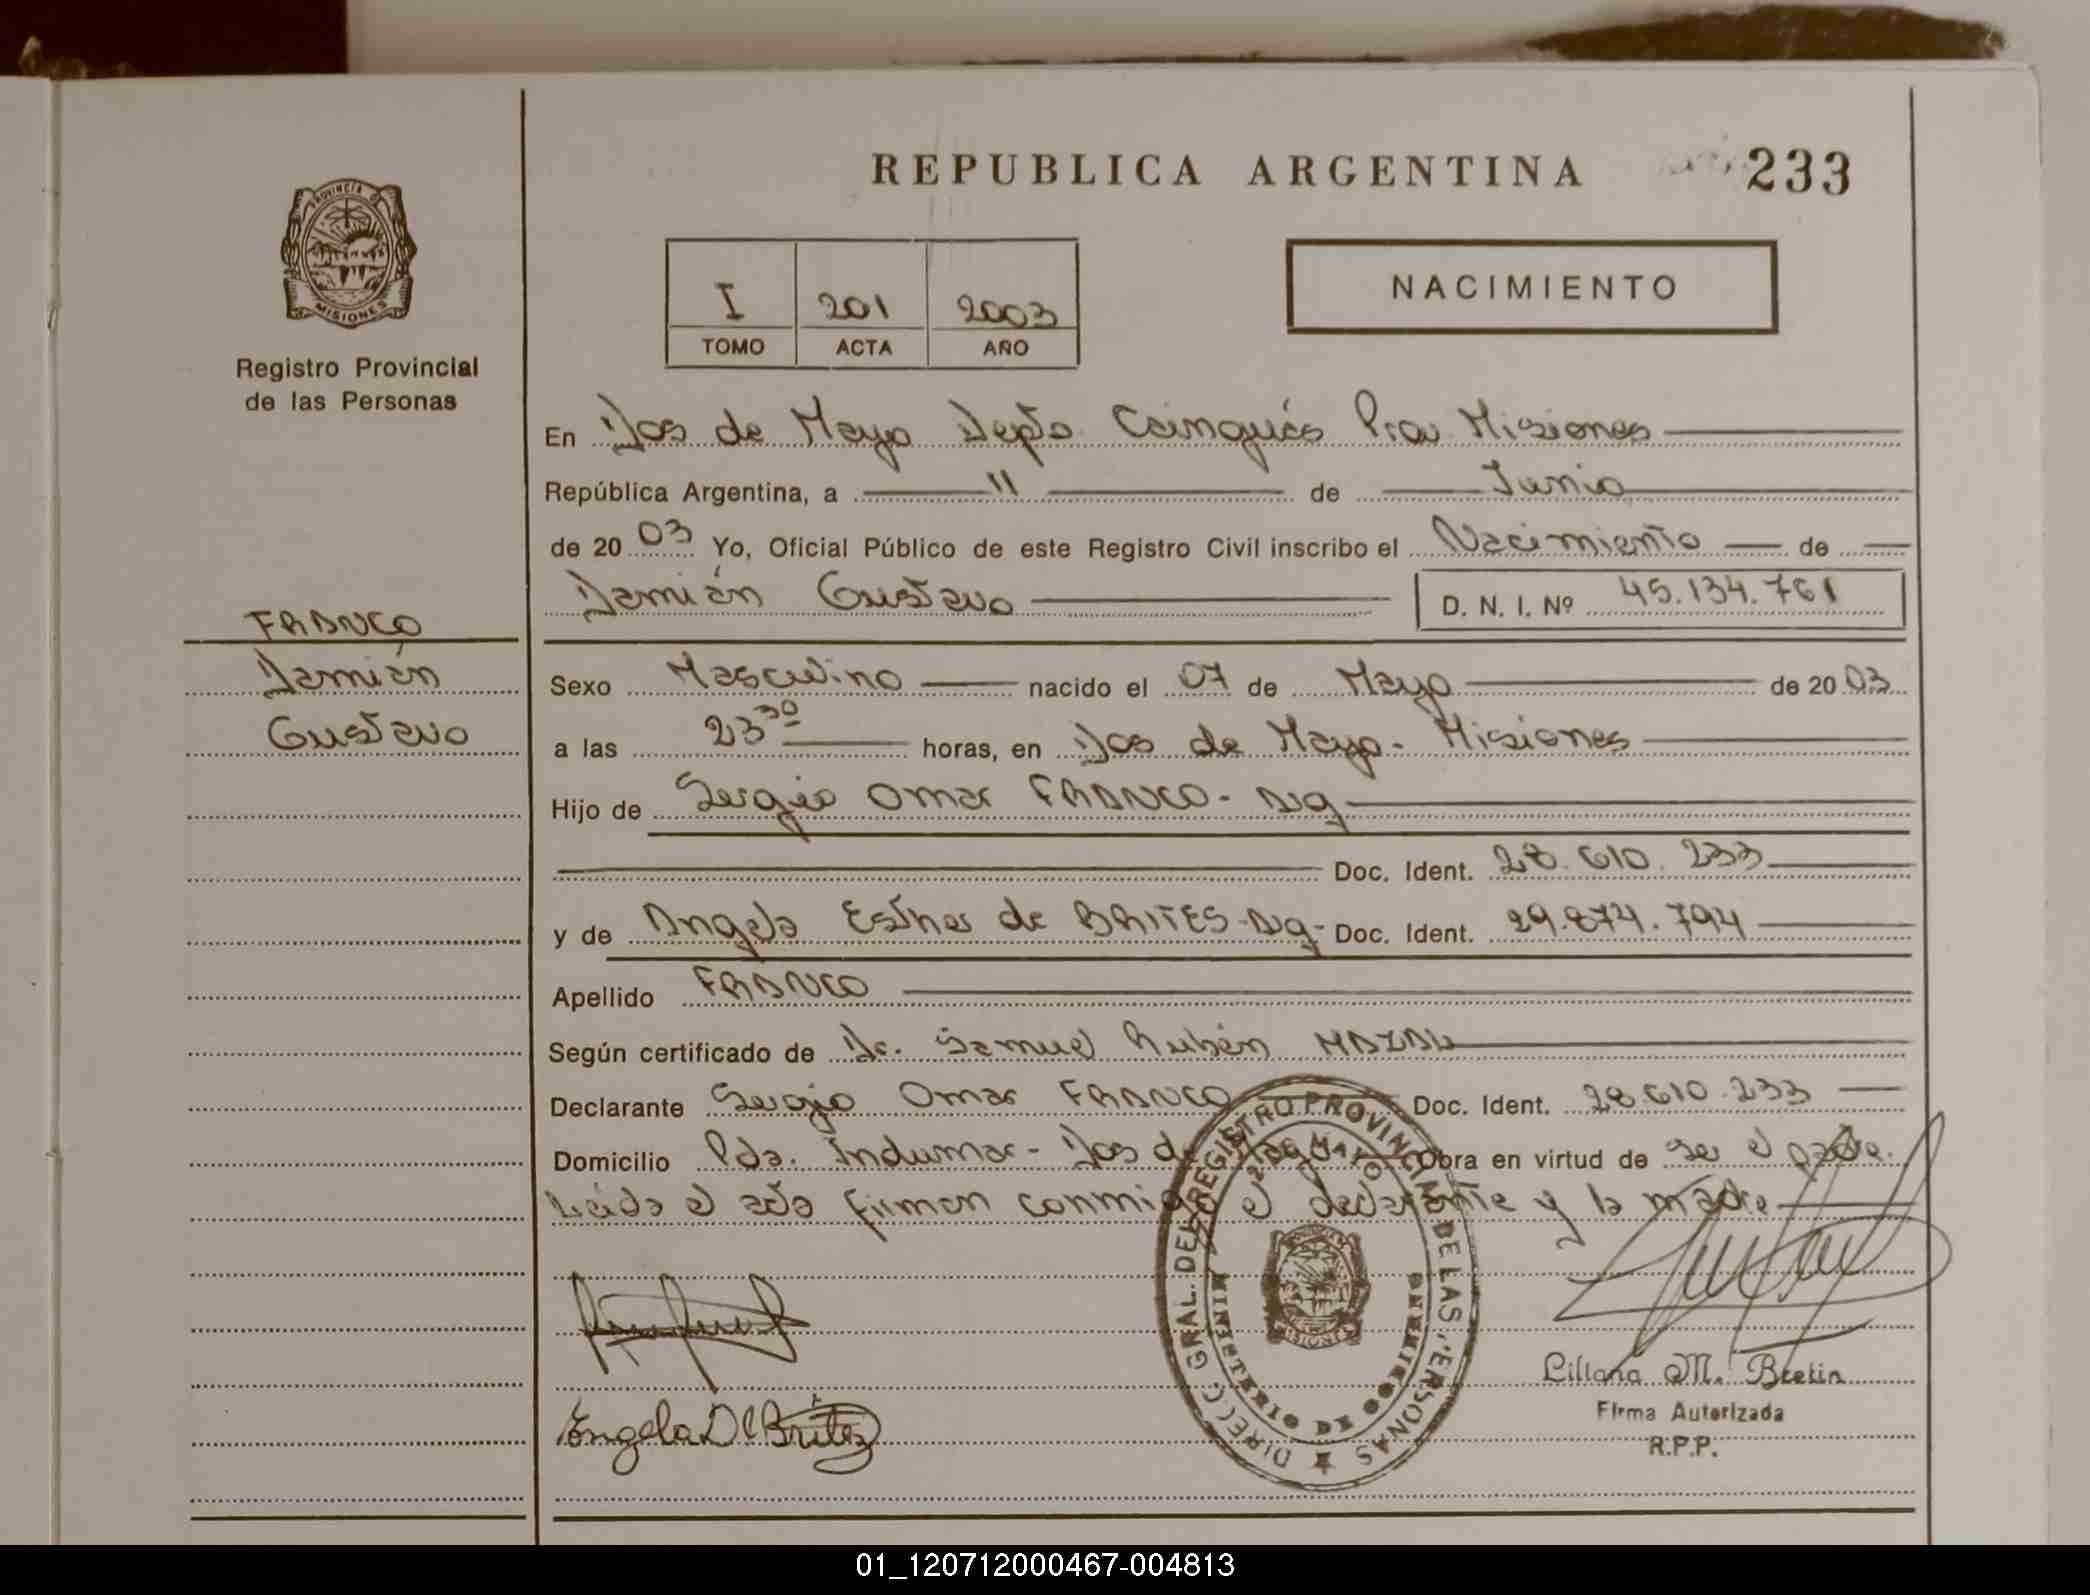 REPUBLICA ARGENTINA
233
PROVINCIA
MISIONES
Registro Provincial
de las Personas
I 201 2003
TOMO ACTA AÑO
NACIMIENTO
En Dos de Mayo Depto Cainguás Prov Misiones
República Argentina, a 11 de Junio
de 20 03 Yo, Oficial Público de este Registro Civil inscribo el Nacimiento de
Damián Gustavo
D. N. I. Nº 45.134.761
FRANCO
Damián
Gustavo
Sexo Masculino nacido el 07 de Mayo de 20 03
a las 23 30 horas, en Dos de Mayo - Misiones
Hijo de Sergio Omar FRANCO - Arg
Doc. Ident. 28.610.233
y de Angela Esther de BRITES - Arg - Doc. Ident. 29.874.794
Apellido FRANCO
Según certificado de Dr. Samuel Rubén
Declarante Sergio Omar FRANCO Doc. Ident. 28.610.233
Domicilio Pda. Indumar - Dos de Mayo Obra en virtud de ser el padre.
Leída el acta firman conmigo el declarante y la madre
DIRECC. GRAL. DEL REGISTRO PROVINCIAL DE LAS PERSONAS
2 DE MAYO
MISIONES
Liliana M. Bretin
Firma Autorizada
R.P.P.
Angela D Britez
01_120712000467-004813